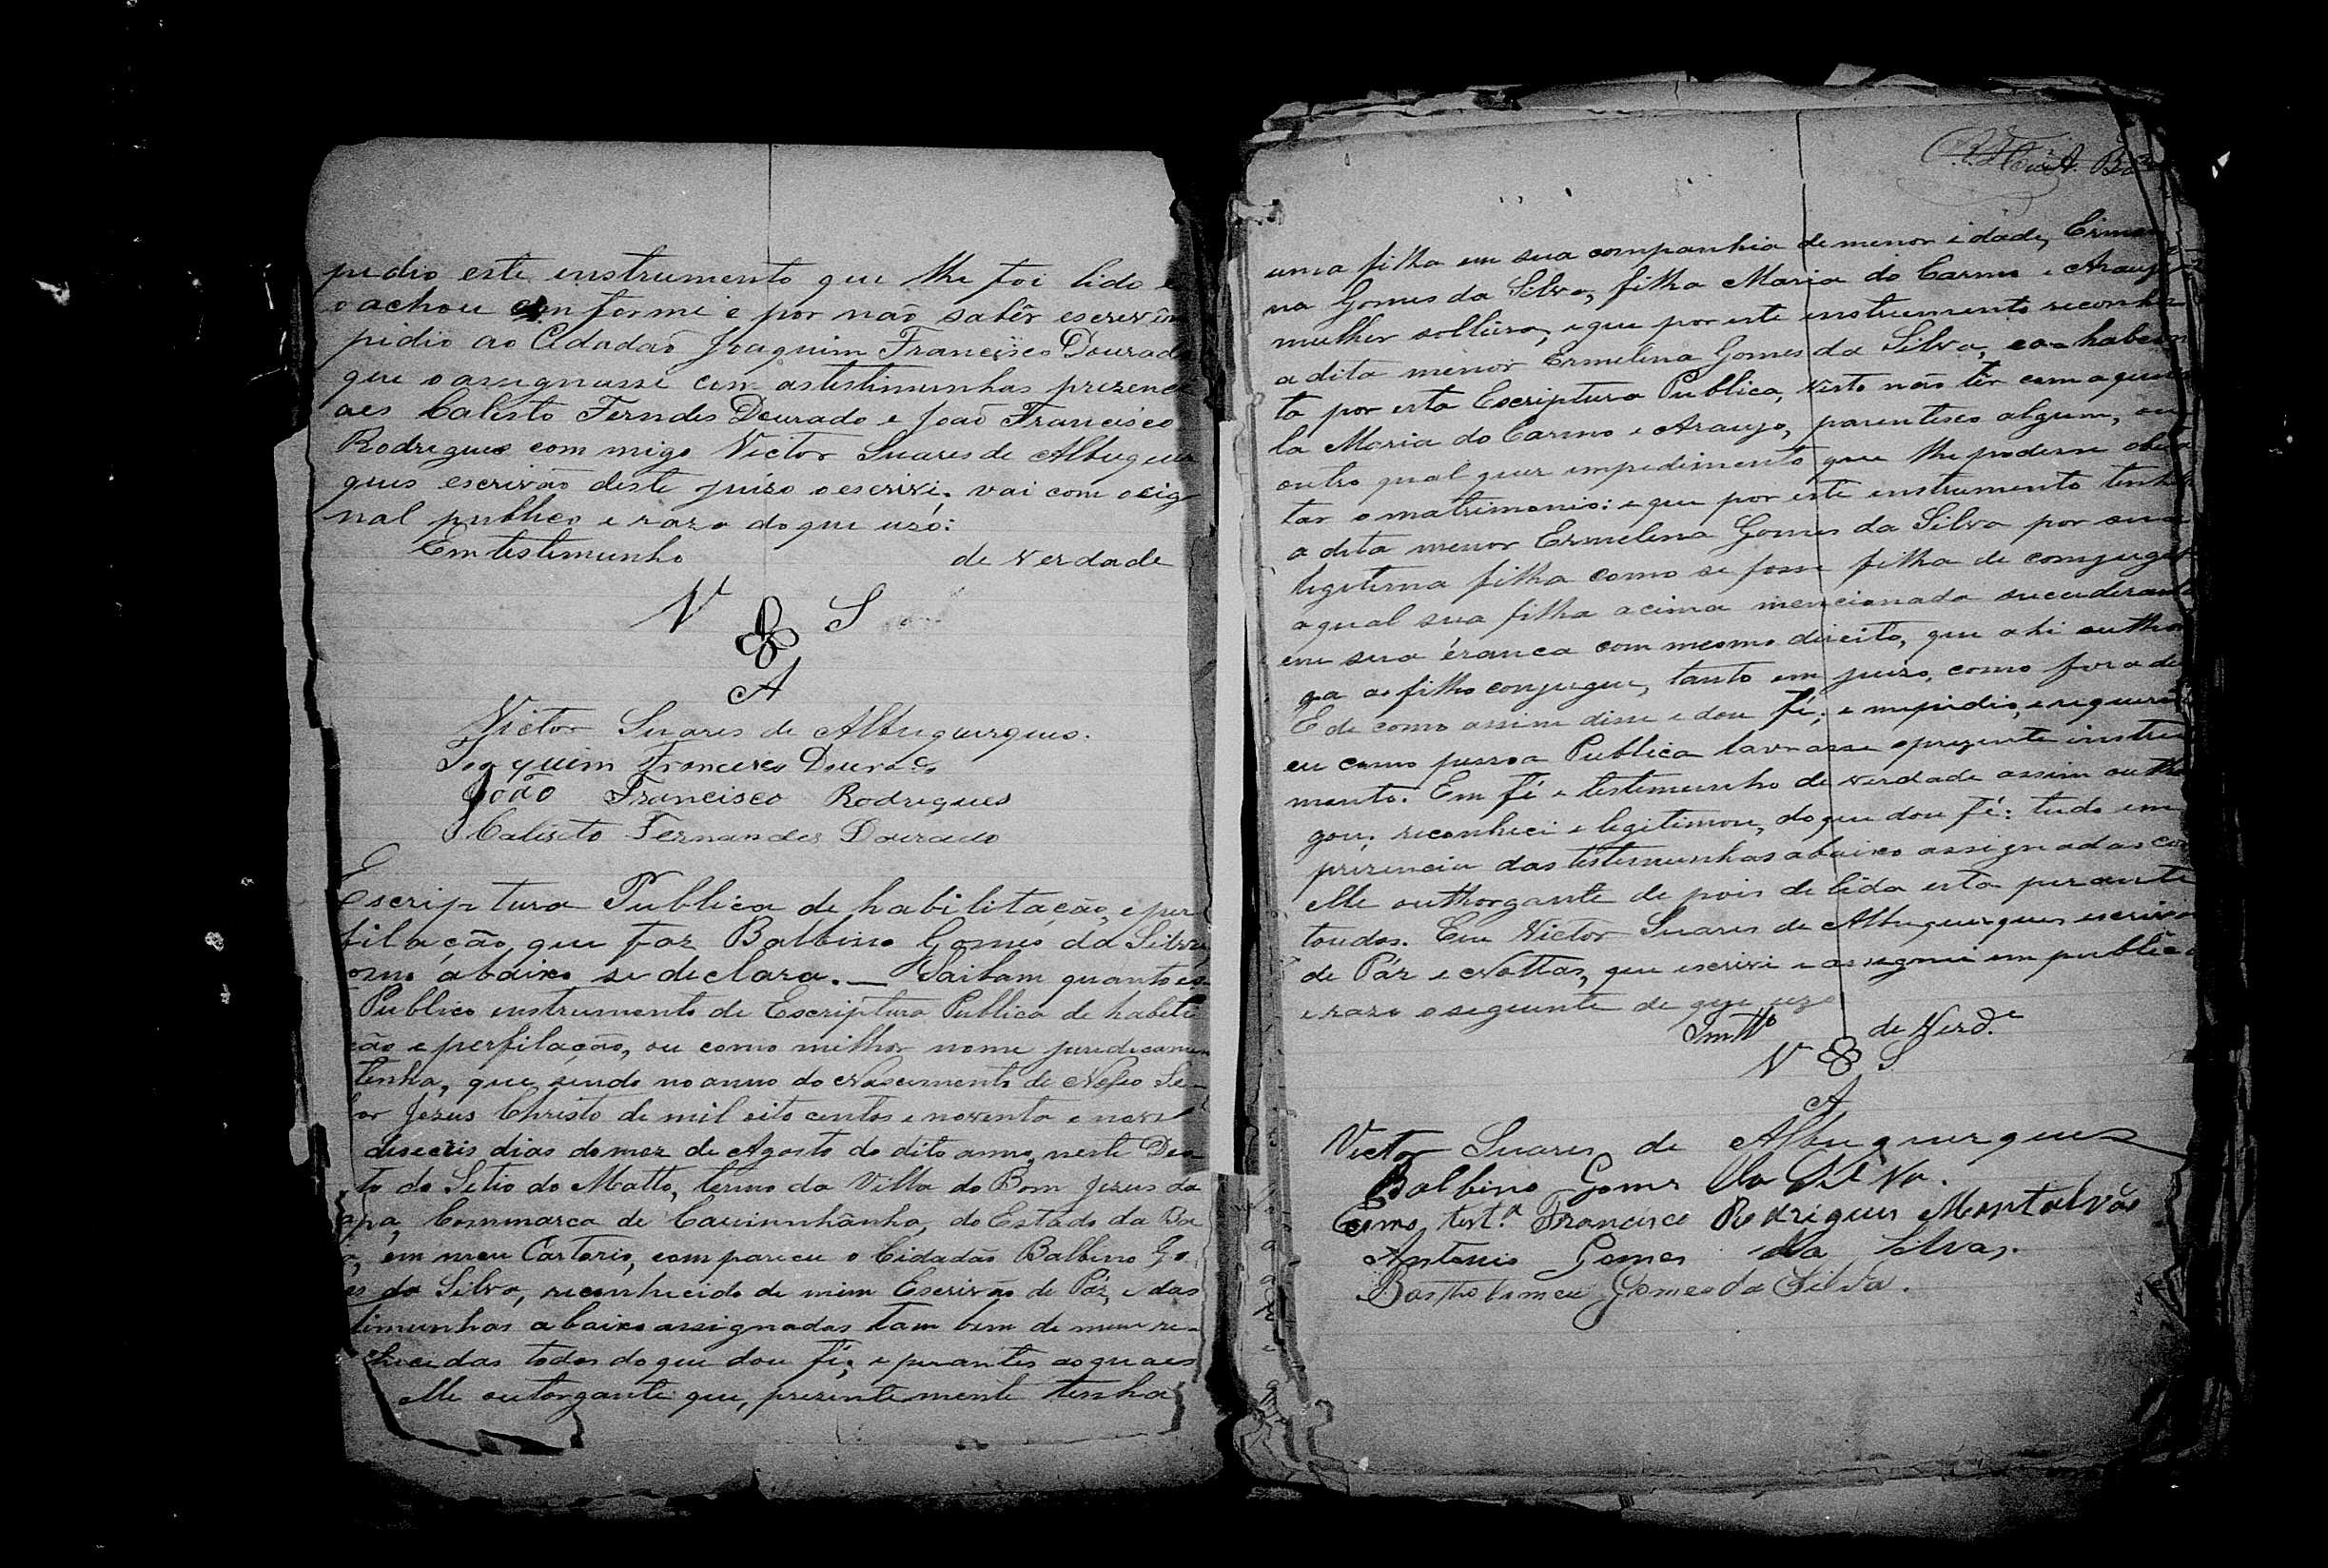 pedio este enstrumento que lhe foi lido e
o achou conforme e por não sabêr escrevêr
pidio ao Cidadão Joaquim Francisco Dourado
que o assignasse com as testimunhas prezenci
aes Calisto Ferndes Dourado e João Francisco
Rodrigues com migo Victor Suares de Albuquer
ques escrivão deste juizo o escrivi; vai com o sig
nal publico e razo do que uzo:
Em testimunho de verdade
V S
A
Victor Suares de Albuquerques.
Joaquim Francisco Dourado
João Francisco Rodrigues
Calisto Fernandes Dourado
Escriptura Publica de habilitação, e per
filação que faz Balbino Gomes da Silva,
como abaixo se declara. — Saibam quantos es-
Publico enstrumento de Escriptura Publica de habili
ção e perfilação, ou como milhor nome juredicamen
tenha, que sendo no anno do Nascimento de Nosso Se-
or Jezus Christo de mil oito centos e noventa e nove
deseceis dias do mez de Agosto do dito anno, neste Des-
to do Sitio do Matto, termo da Villa do Bom Jezus da
apa, Commarca de Carinnhânha, do Estado da Ba
, em meu Cartorio, compareceu o Cidadão Balbino Go
es da Silva, reconhecido de mim Escrivão de Páz, e das
timunhas abaixo assignadas tam bem de mim re-
hecidas todos do que dou fé; e perantes as quaes
elle outorgante que, prezentemente tenha
uma filha em sua companhia de menor idade, Erme
na Gomes da Silva, filha Maria do Carmo e Araujo
mulher solteira, e que por este enstrumento reconhe
a dita menor Ermelina Gomes da Silva, e a habeli
ta por esta Escriptura Publica, visto não têr com aquel
la Maria do Carmo e Araujo, parentisco algum, ou
outro qual quer impedimento que lhe podesse obis
tar o matrimonio: e que por este enstrumento tenha
a dita menor Ermelina Gomes da Silva por sua
legitima filha como se fosse filha de conjuge
a qual sua filha acima mencionada succederam
em sua érança com mesmo direito, que a lei outhor
ga ao filho conjugue, tanto em juizo, como fora de
E de como assim disse e dou fé; e me pidio, e requereu
eu como pessoa Publica lavrasse o prezente instru
mento. Em fé e testemunho de verdade assim outhor
gou; reconheci e legitimou, do que dou fé: tudo em
prezencia das testemunhas abaixo assignadas com
elle outhorgante de pois de lida esta perante
toudos. Eu Victor Suares de Albuquerques escrivão
de Páz e Nottas, que escrivi e assignei em publico
e razo o seguinte de que uzo
Em tto de Verd.e
V S
A
Victor Suares de Albuquerques
Balbino Gomes da Silva.
Como test.a Francisco Rodrigues Montalvão
Antonio Gomes da Silva.
Bartholomeu Gomes da Silva.